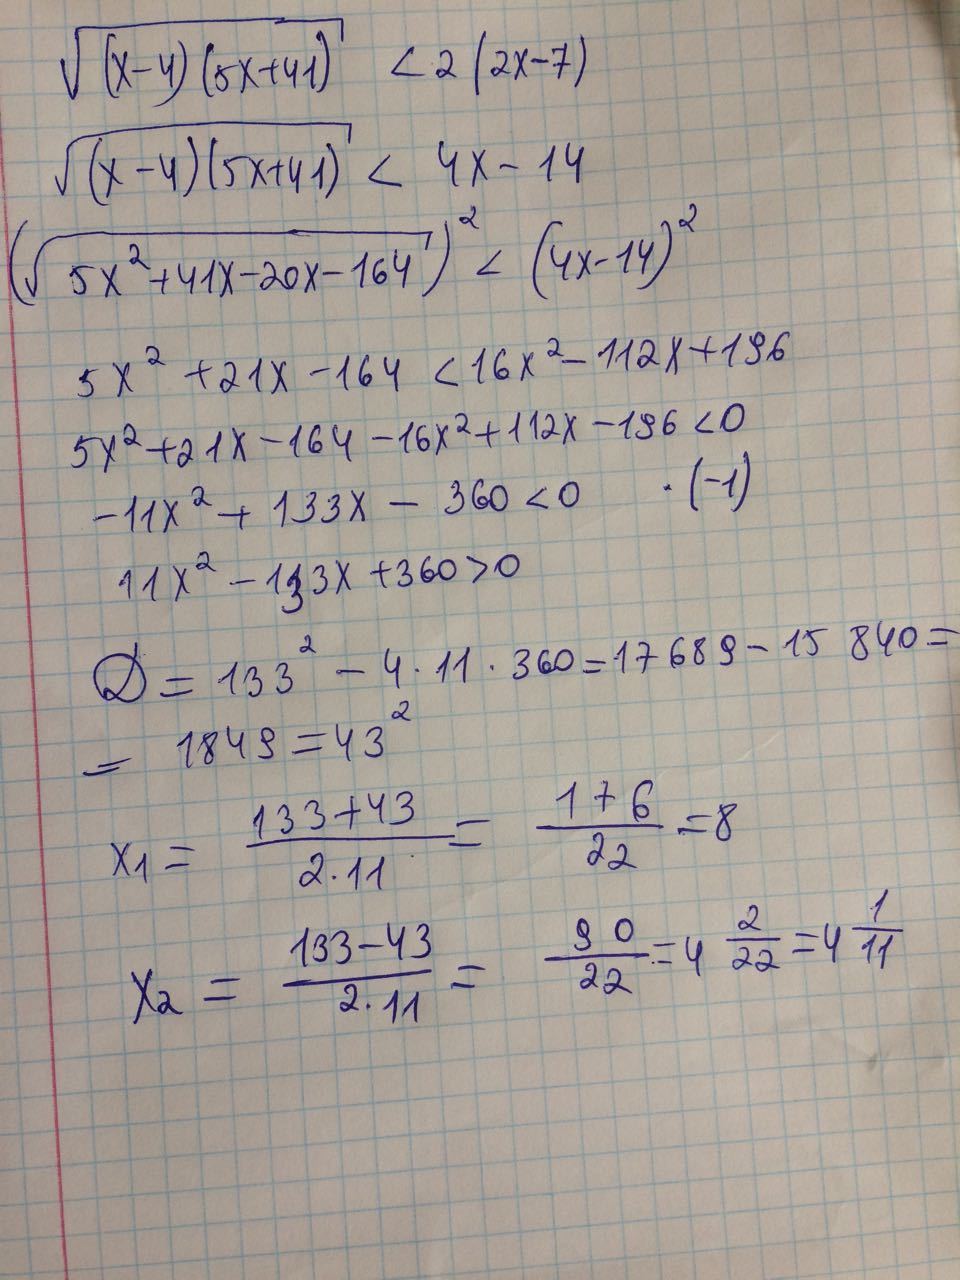 √(x-4)(5x+41) < 2(2x-7)
√(x-4)(5x+41) < 4x-14
(√5x²+41x-20x-164)² < (4x-14)²
5x²+21x-164 < 16x²-112x+196
5x²+21x-164-16x²+112x-196<0
-11x²+133x-360<0 ·(-1)
11x²-133x+360>0
D=133²-4·11·360=17689-15840=
=1849=43²
x₁=(133+43)/(2·11)=176/22=8
x₂=(133-43)/(2·11)=90/22=4 2/22=4 1/11